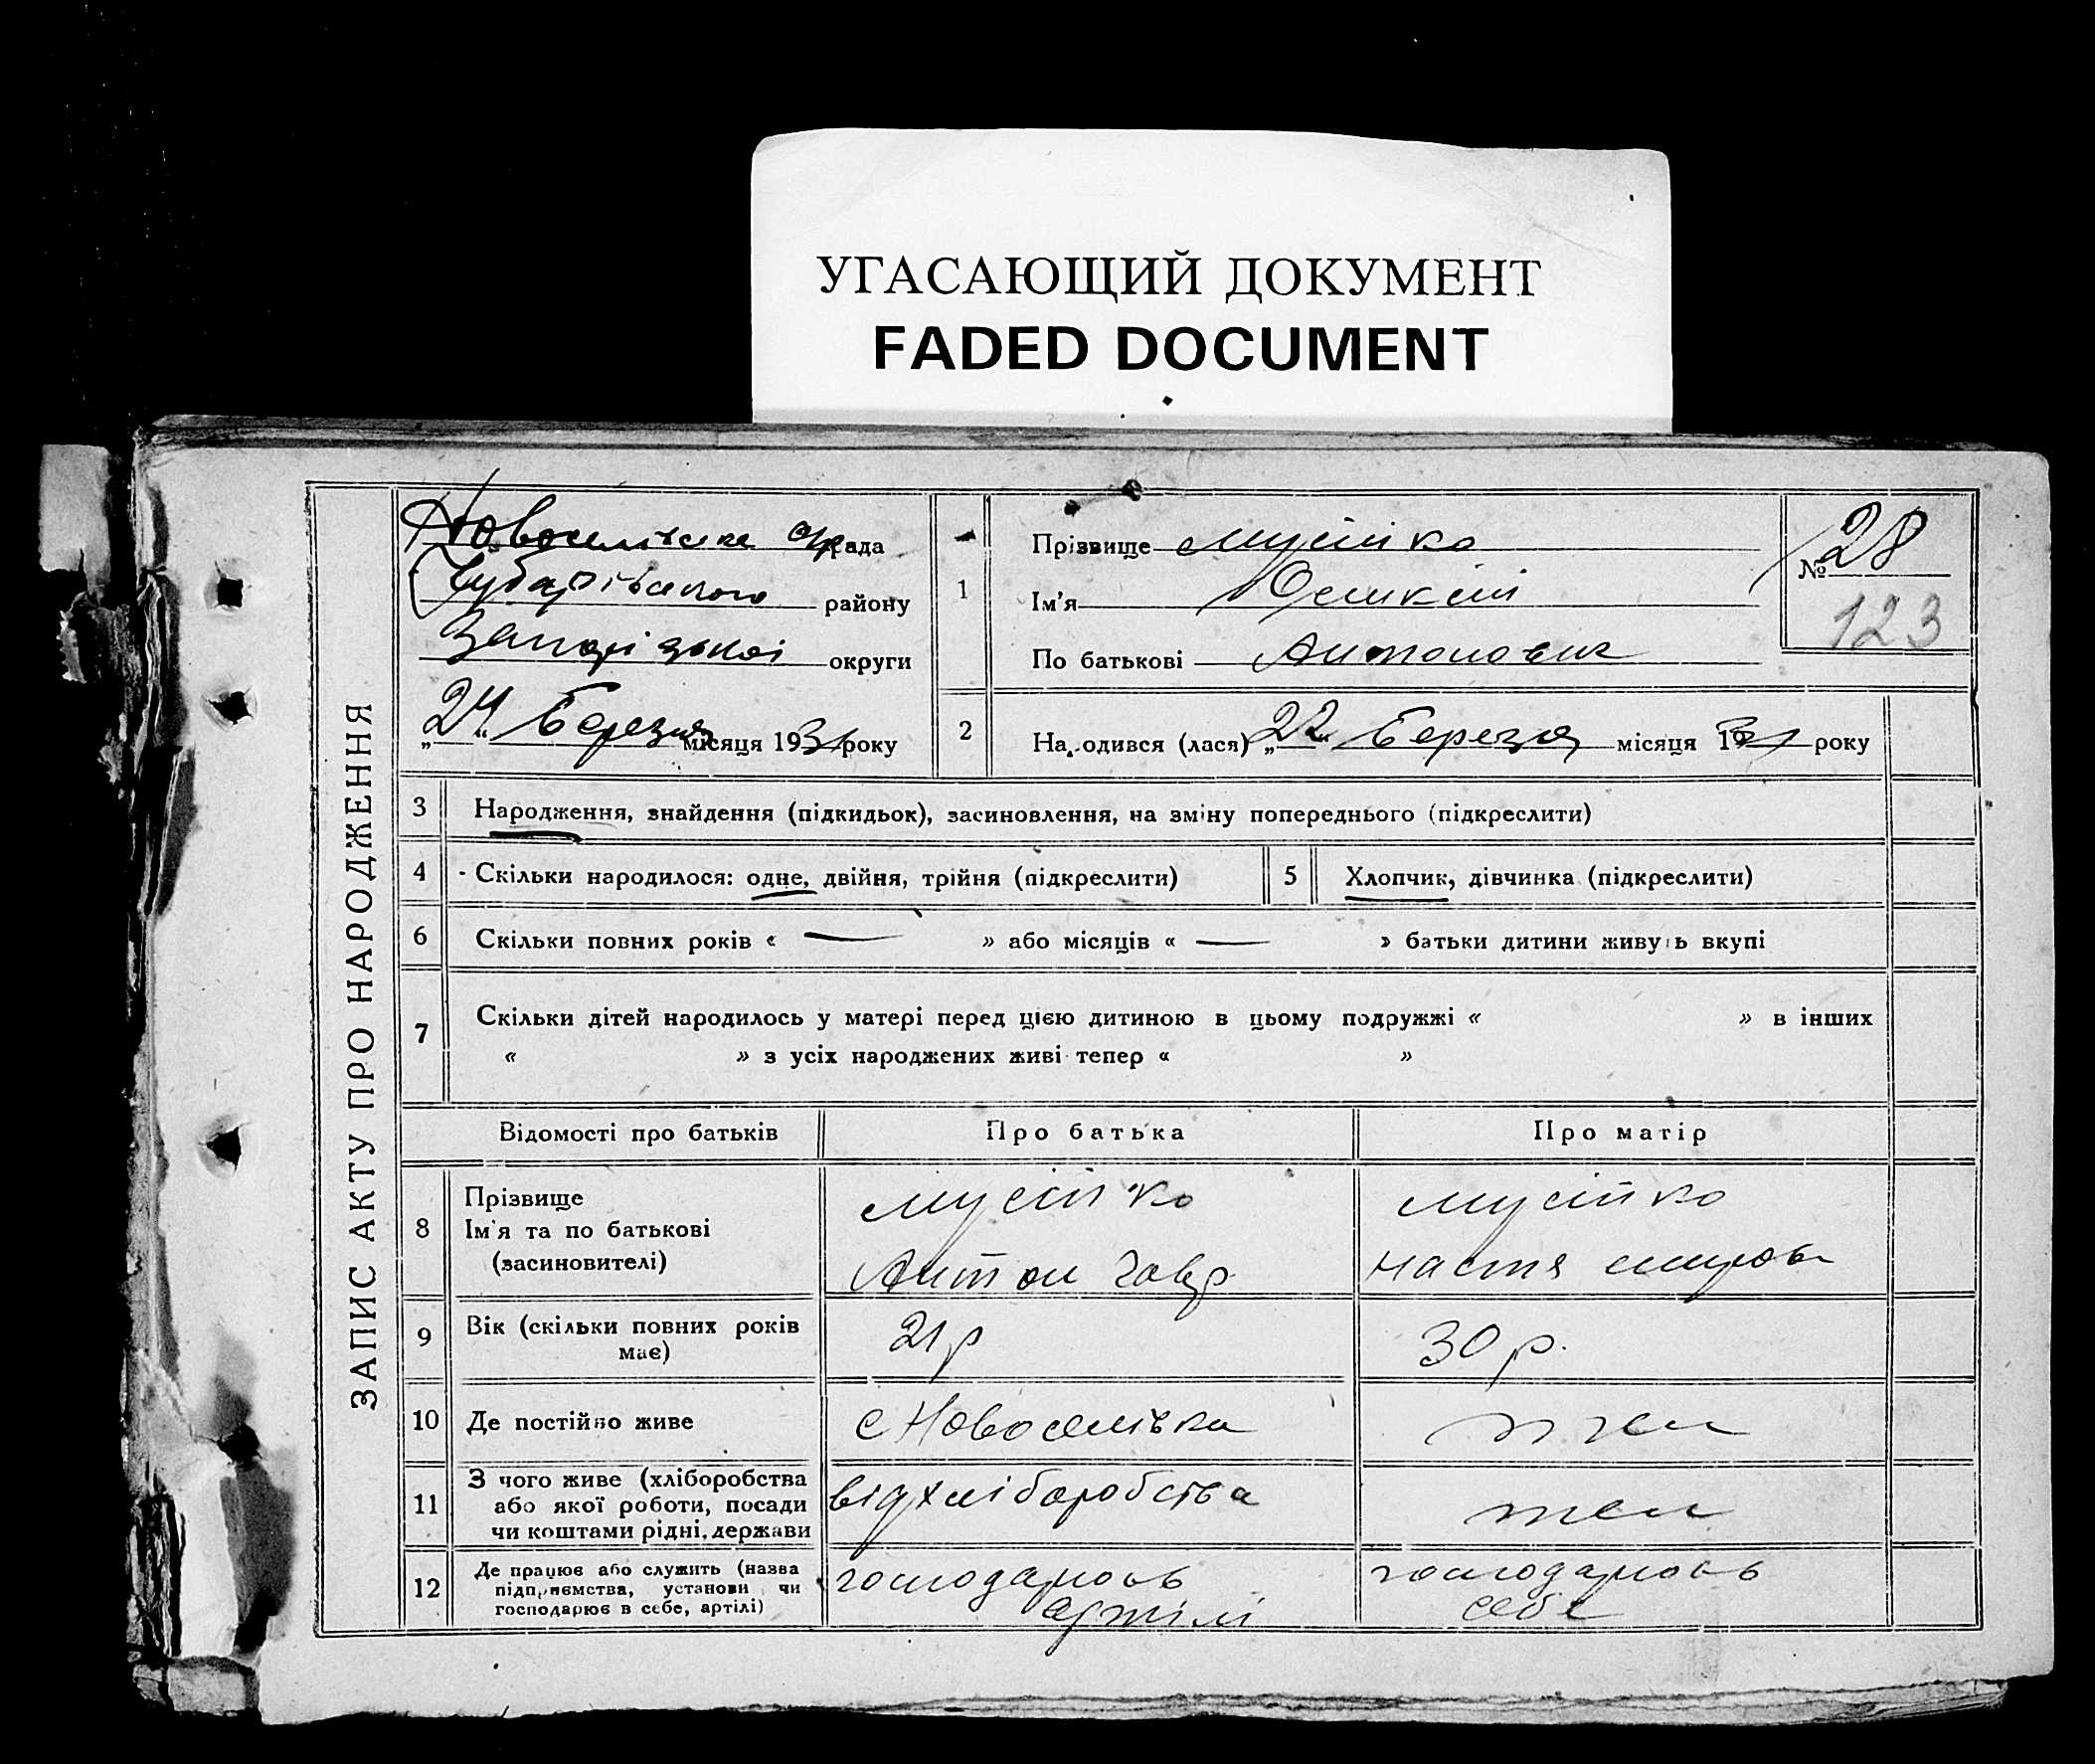 УГАСАЮЩИЙ ДОКУМЕНТ
FADED DOCUMENT
ЗАПИС АКТУ ПРО НАРОДЖЕННЯ
Новоселівська с/рада
Чубарівського району
Запорізької округи
„24“ Березня місяця 1931 року
1
Прізвище Мусійко
Ім'я
По батькові Антонович
№ 28
123
2
Народився (лася) „22“ Березня місяця 1931 року
3 Народження, знайдення (підкидьок), засиновлення, на зміну попереднього (підкреслити)
4 Скільки народилося: одне, двійня, трійня (підкреслити)
5 Хлопчик, дівчинка (підкреслити)
6 Скільки повних років « — » або місяців « — » батьки дитини живуть вкупі
7 Скільки дітей народилось у матері перед цією дитиною в цьому подружжі « » в інших
« » з усіх народжених живі тепер « »
Відомості про батьків Про батька Про матір
8
Прізвище
Ім'я та по батькові
(засиновителі)
Мусійко
Антон Гавр
Мусійко
Настя
9
Вік (скільки повних років
має)
21р
30 р.
10 Де постійно живе
с Новоселівка
11
З чого живе (хліборобства
або якої роботи, посади
чи коштами рідні, держави
від хліборобства
12
Де працює або служить (назва
підприємства, установи чи
господарює в себе, артілі)
господарює
артілі
господарює
себе